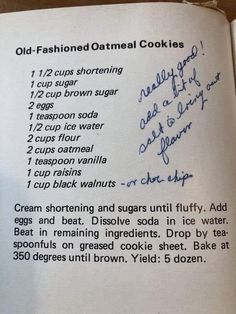 Old-Fashioned Oatmeal Cookies
1 1/2 cups shortening
1 cup sugar
1/2 cup brown sugar
2 eggs
1 teaspoon soda
1/2 cup ice water
2 cups flour
2 cups oatmeal
1 teaspoon vanilla
1 cup raisins
1 cup black walnuts - or choc chips
really good!
add a bit of
salt to bring out
flavor
Cream shortening and sugars until fluffy. Add
eggs and beat. Dissolve soda in ice water.
Beat in remaining ingredients. Drop by tea-
spoonfuls on greased cookie sheet. Bake at
350 degrees until brown. Yield: 5 dozen.